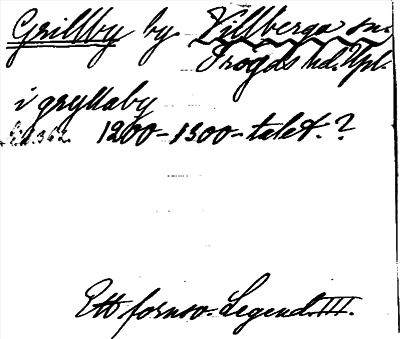 Grillby by. Villberga sn.
Trögds hd. Upl.
i gryllaby
s. 362. 1200-1300-talet.?
Ett fornsv. Legend. III.